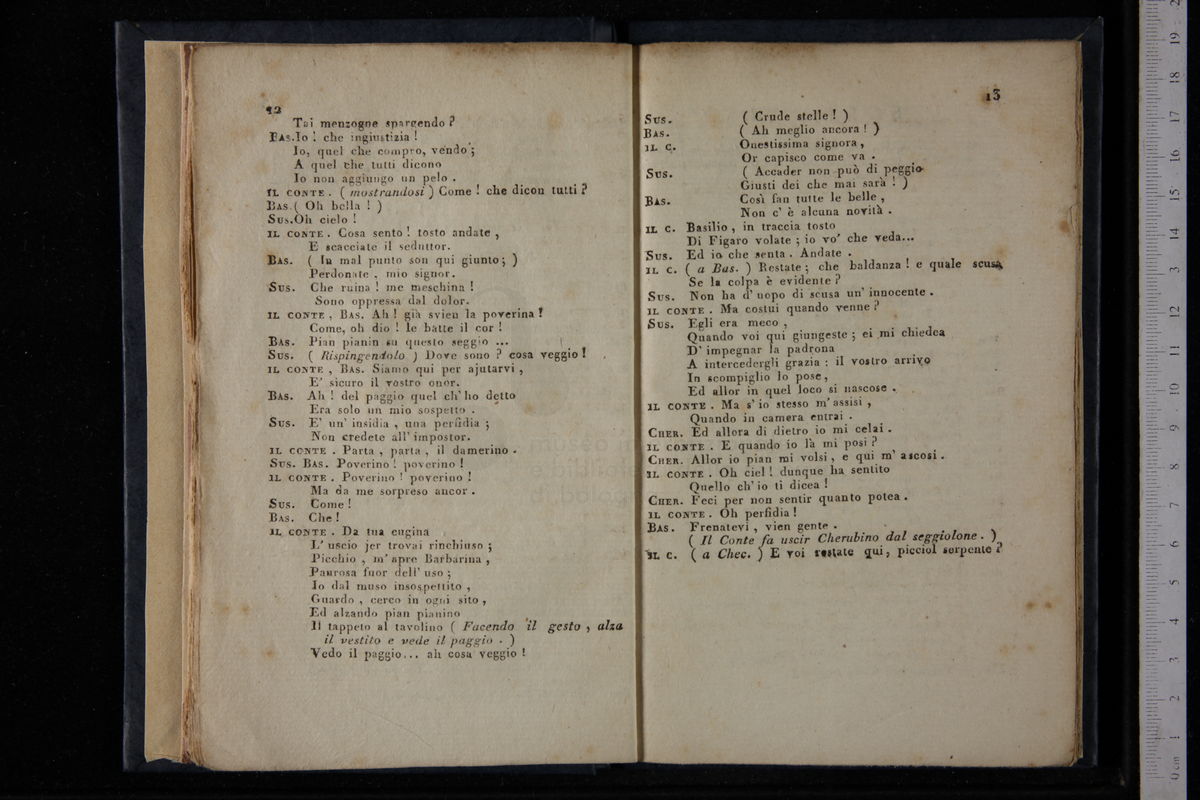 12
Tai menzogne spargendo ?
BAS.Io ! che ingiustizia !
Io, quel che compro, vendo ;
A quel che tutti dicono
Io non aggiungo un pelo .
IL CONTE . ( mostrandosi ) Come ! che dicon tutti ?
BAS.( Oh bella ! )
SUS.Oh cielo !
IL CONTE . Cosa sento ! tosto andate ,
E scacciate il seduttor.
BAS. ( In mal punto son qui giunto ; )
Perdonate , mio signor.
SUS. Che ruina ! me meschina !
Sono oppressa dal dolor.
IL CONTE , BAS. Ah ! già svien la poverina !
Come, oh dio ! le batte il cor !
BAS. Pian pianin su questo seggio ...
SUS. ( Rispingendolo ) Dove sono ? cosa veggio !
IL CONTE , BAS. Siamo qui per ajutarvi ,
E' sicuro il vostro onor.
BAS. Ah ! del paggio quel ch' ho detto
Era solo un mio sospetto .
SUS. E' un' insidia , una perfidia ;
Non credete all' impostor.
IL CONTE . Parta , parta , il damerino .
SUS. BAS. Poverino ! poverino !
IL CONTE . Poverino ! poverino !
Ma da me sorpreso ancor .
SUS. Come !
BAS. Che !
IL CONTE . Da tua cugina
L' uscio jer trovai rinchiuso ;
Picchio , m' apre Barbarina ,
Paurosa fuor dell' uso ;
Io dal muso insospettito ,
Guardo , cerco in ogni sito ,
Ed alzando pian pianino
Il tappeto al tavolino ( Facendo il gesto , alza
il vestito e vede il paggio . )
Vedo il paggio... ah cosa veggio !
13
SUS. ( Crude stelle ! )
BAS. ( Ah meglio ancora ! )
IL C. Onestissima signora ,
Or capisco come va .
SUS. ( Accader non può di peggio
Giusti dei che mai sarà ! )
BAS. Così fan tutte le belle ,
Non c' è alcuna novità .
IL C. Basilio , in traccia tosto
Di Figaro volate ; io vo' che veda...
SUS. Ed io che senta . Andate .
IL C. ( a Bas. ) Restate ; che baldanza ! e quale scusa
Se la colpa è evidente ?
SUS. Non ha d' uopo di scusa un' innocente .
IL CONTE . Ma costui quando venne ?
SUS. Egli era meco ,
Quando voi qui giungeste ; ei mi chiedea
D' impegnar la padrona
A intercedergli grazia : il vostro arrivo
In scompiglio lo pose ,
Ed allor in quel loco si nascose .
IL CONTE . Ma s' io stesso m' assisi ,
Quando in camera entrai .
CHER. Ed allora di dietro io mi celai .
IL CONTE . E quando io là mi posi ?
CHER. Allor io pian mi volsi , e qui m' ascosi .
IL CONTE . Oh ciel ! dunque ha sentito
Quello ch' io ti dicea !
CHER. Feci per non sentir quanto potea .
IL CONTE . Oh perfidia !
BAS. Frenatevi , vien gente .
( Il Conte fa uscir Cherubino dal seggiolone . )
IL C. ( a Chec. ) E voi restate qui, picciol serpente ?